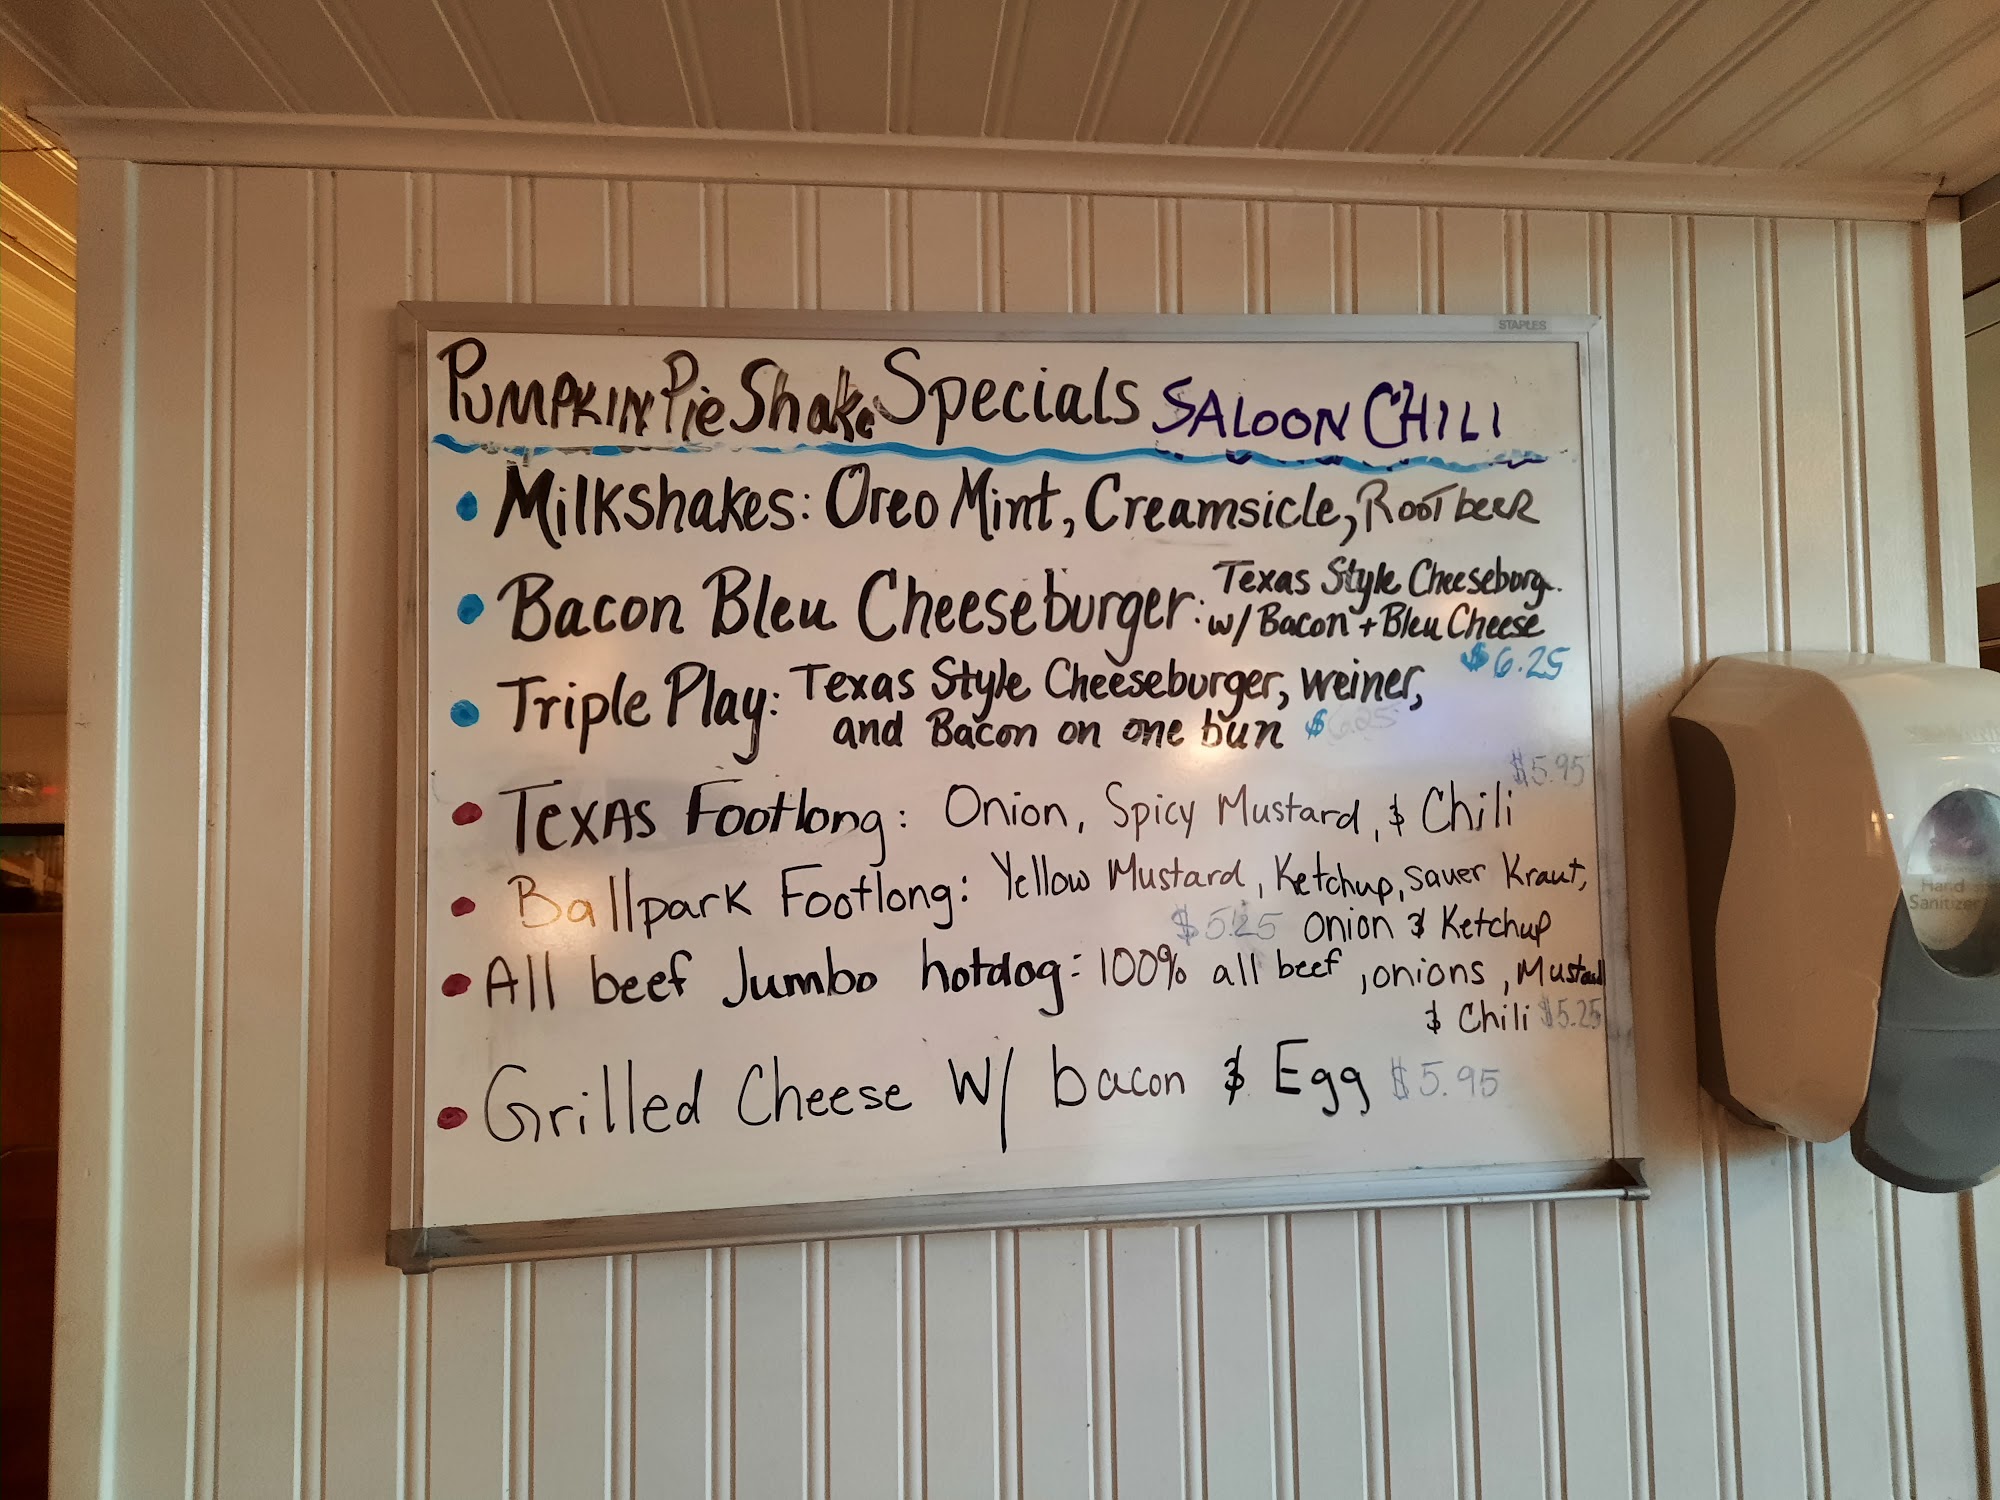 STAPLES
PUMPKIN Pie Shake Specials SALOON CHILI
• Milkshakes: Oreo Mint, Creamsicle, Root beeR
• Bacon Bleu Cheeseburger: Texas Style Cheeseburg.
w/ Bacon + Bleu Cheese
$6.25
• Triple Play: Texas Style Cheeseburger, weiner,
and Bacon on one bun $6.25
$5.95
• TexAs Footlong: Onion, Spicy Mustard, & Chili
• Ballpark Footlong: Yellow Mustard, Ketchup, Sauer Kraut,
$5.25 Onion & Ketchup
• All beef Jumbo hotdog: 100% all beef, onions, Mustard
& Chili $5.25
• Grilled Cheese W/ bacon & Egg $5.95
Hand
Sanitizer